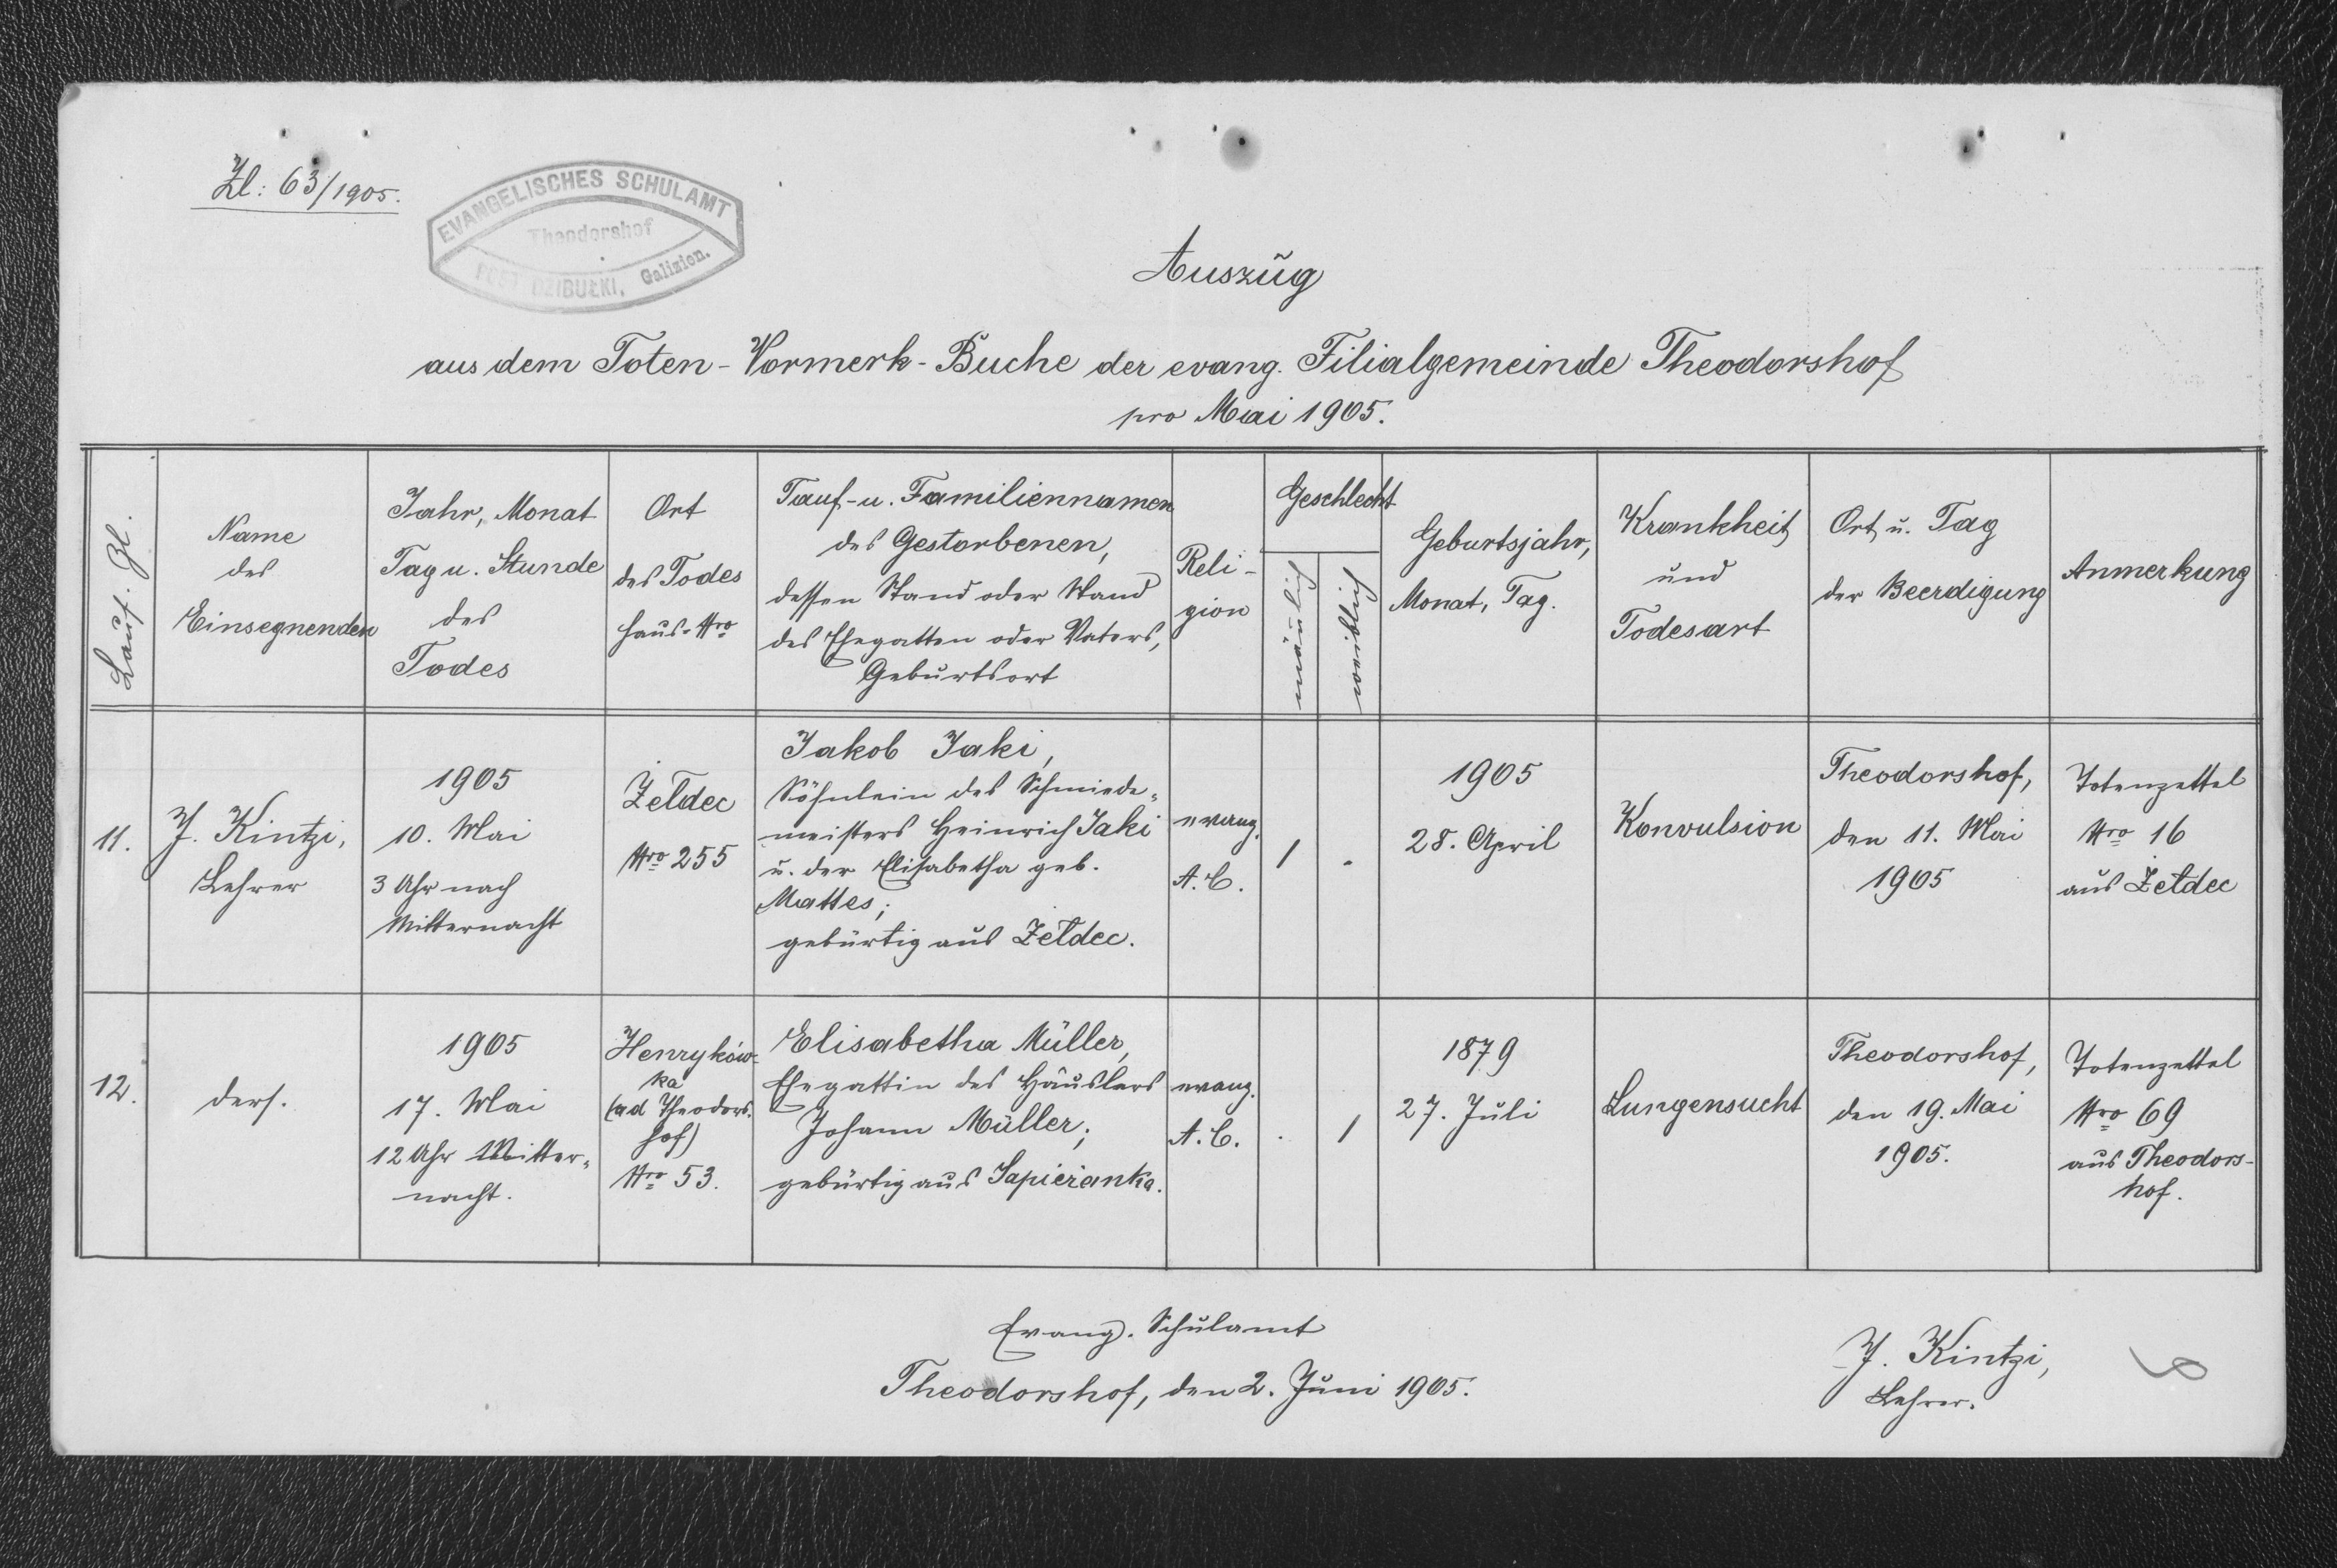 Zl: 63/1905.
EVANGELISCHES SCHULAMT
Theodorshof
POST DZIBUŁKI, Galizien.
Auszug
aus dem Toten-Vormerk-Buche der evang. Filialgemeinde Theodorshof
pro Mai 1905.
Lauf. Zl.
Name
des
Einsegnenden
Jahr, Monat
Tag u. Stunde
des
Todes
Ort
des Todes
Haus-Nro
Tauf- u. Familiennamen
des Gestorbenen,
dessen Stand oder Stand
des Ehegatten oder Vaters,
Geburtsort
Reli-
gion
Geschlecht
mänlich
weiblich
Geburtsjahr,
Monat, Tag.
Krankheit
und
Todesart
Ort u. Tag
der Beerdigung
Anmerkung
11.
J. Kintzi,
Lehrer
1905
10. Mai
3 Uhr nach
Mitternacht
Żełdec
Nro 255
Jakob Jaki,
Söhnlein des Schmiede-
meisters Heinrich Jaki
u. der Elisabetha geb.
Mattes;
gebürtig aus Żełdec.
evang.
A. C.
1
.
1905
28. April
Konvulsion
Theodorshof,
den 11. Mai
1905
Totenzettel
Nro 16
aus Żełdec
12.
ders.
1905
17. Mai
12 Uhr Mitter-
nacht.
Henryków-
ka
(ad Theodors-
hof)
Nro 53.
Elisabetha Müller,
Ehegattin des Häuslers
Johann Müller;
gebürtig aus Sapieżanka.
evang.
A. C.
.
1
1879
27. Juli
Lungensucht
Theodorshof,
den 19. Mai
1905.
Totenzettel
Nro 69
aus Theodors-
hof.
Evang. Schulamt
Theodorshof, den 2. Juni 1905.
J. Kintzi,
Lehrer.